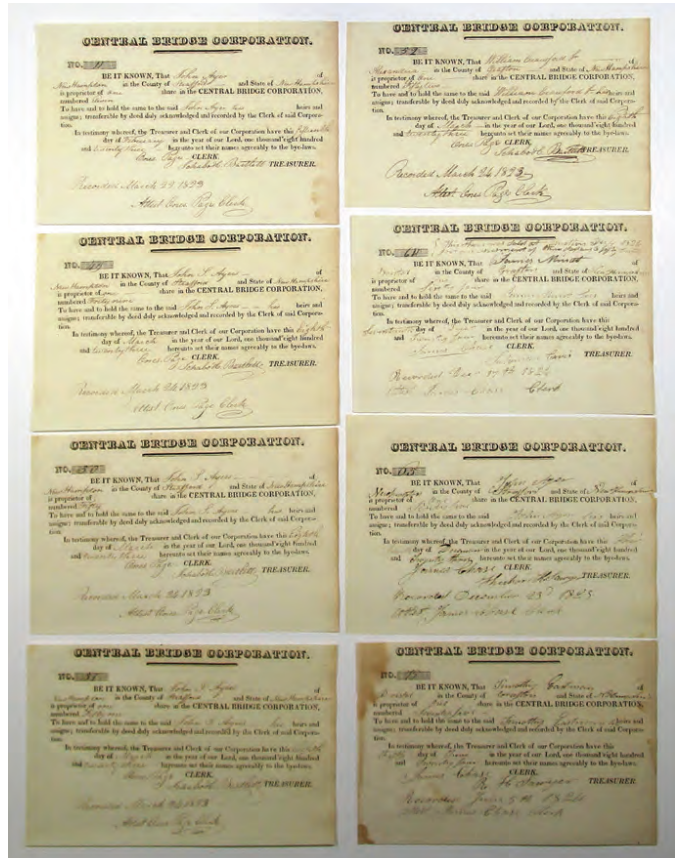 CENTRAL BRIDGE CORPORATION.
NO.
BE IT KNOWN, That John Ayer of
New Hampton in the County of Strafford and State of New Hampshire
is proprietor of one share in the CENTRAL BRIDGE CORPORATION,
numbered
To have and to hold the same to the said John Ayer his heirs and
assigns; transferable by deed duly acknowledged and recorded by the Clerk of said Corpora-
tion.
In testimony whereof, the Treasurer and Clerk of our Corporation have this
day of February in the year of our Lord, one thousand eight hundred
and twenty three hereunto set their names agreeably to the bye-laws.
Page CLERK.
Bartlett TREASURER.
Recorded March 24 1823
Attest Page Clerk
CENTRAL BRIDGE CORPORATION.
NO.
BE IT KNOWN, That John S. Ayers of
New Hampton in the County of Strafford and State of New Hampshire
is proprietor of one share in the CENTRAL BRIDGE CORPORATION,
numbered Forty nine
To have and to hold the same to the said John S. Ayers his heirs and
assigns; transferable by deed duly acknowledged and recorded by the Clerk of said Corpora-
tion.
In testimony whereof, the Treasurer and Clerk of our Corporation have this Eighth
day of March in the year of our Lord, one thousand eight hundred
and twenty three hereunto set their names agreeably to the bye-laws.
Page CLERK.
Bartlett TREASURER.
Recorded March 24 1823
Attest Page Clerk
CENTRAL BRIDGE CORPORATION.
NO. 50
BE IT KNOWN, That John S. Ayers of
New Hampton in the County of Strafford and State of New Hampshire
is proprietor of share in the CENTRAL BRIDGE CORPORATION,
numbered Fifty
To have and to hold the same to the said John S. Ayers his heirs and
assigns; transferable by deed duly acknowledged and recorded by the Clerk of said Corpora-
tion.
In testimony whereof, the Treasurer and Clerk of our Corporation have this Eighth
day of March in the year of our Lord, one thousand eight hundred
and twenty three hereunto set their names agreeably to the bye-laws.
Page CLERK.
Bartlett TREASURER.
Recorded March 24 1823
Attest Page Clerk
CENTRAL BRIDGE CORPORATION.
NO. 51
BE IT KNOWN, That John S. Ayers of
New Hampton in the County of Strafford and State of New Hampshire
is proprietor of one share in the CENTRAL BRIDGE CORPORATION,
numbered Fifty one
To have and to hold the same to the said John S. Ayers his heirs and
assigns; transferable by deed duly acknowledged and recorded by the Clerk of said Corpora-
tion.
In testimony whereof, the Treasurer and Clerk of our Corporation have this eighth
day of March in the year of our Lord, one thousand eight hundred
and twenty three hereunto set their names agreeably to the bye-laws.
Page CLERK.
Bartlett TREASURER.
Recorded March 24 1823
Attest Page Clerk
CENTRAL BRIDGE CORPORATION.
NO.
BE IT KNOWN, That William Crawford Jr of
in the County of Grafton and State of New Hampshire
is proprietor of one share in the CENTRAL BRIDGE CORPORATION,
numbered
To have and to hold the same to the said William Crawford Jr his heirs and
assigns; transferable by deed duly acknowledged and recorded by the Clerk of said Corpora-
tion.
In testimony whereof, the Treasurer and Clerk of our Corporation have this eighth
day of March in the year of our Lord, one thousand eight hundred
and twenty three hereunto set their names agreeably to the bye-laws.
Page CLERK.
Bartlett TREASURER.
Recorded March 24 1823
Attest Page Clerk
CENTRAL BRIDGE CORPORATION.
NO.
BE IT KNOWN, That James of
Bristol in the County of Grafton and State of New Hampshire
is proprietor of share in the CENTRAL BRIDGE CORPORATION,
numbered
To have and to hold the same to the said James his heirs and
assigns; transferable by deed duly acknowledged and recorded by the Clerk of said Corpora-
tion.
In testimony whereof, the Treasurer and Clerk of our Corporation have this
day of in the year of our Lord, one thousand eight hundred
and twenty four hereunto set their names agreeably to the bye-laws.
James Chase CLERK.
TREASURER.
Recorded 1824
Attest James Chase Clerk
CENTRAL BRIDGE CORPORATION.
NO.
BE IT KNOWN, That John of
in the County of Strafford and State of New Hampshire
is proprietor of share in the CENTRAL BRIDGE CORPORATION,
numbered
To have and to hold the same to the said John his heirs and
assigns; transferable by deed duly acknowledged and recorded by the Clerk of said Corpora-
tion.
In testimony whereof, the Treasurer and Clerk of our Corporation have this
day of December in the year of our Lord, one thousand eight hundred
and twenty three hereunto set their names agreeably to the bye-laws.
James Chase CLERK.
TREASURER.
Recorded December 23d 1823
Attest James Chase Clerk
CENTRAL BRIDGE CORPORATION.
NO.
BE IT KNOWN, That Timothy Eastman of
Bristol in the County of Grafton and State of N Hampshire
is proprietor of share in the CENTRAL BRIDGE CORPORATION,
numbered
To have and to hold the same to the said Timothy Eastman heirs and
assigns; transferable by deed duly acknowledged and recorded by the Clerk of said Corpora-
tion.
In testimony whereof, the Treasurer and Clerk of our Corporation have this
day of June in the year of our Lord, one thousand eight hundred
and twenty four hereunto set their names agreeably to the bye-laws.
James Chase CLERK.
R H Sawyer TREASURER.
Recorded June 5th 1824
Attest James Chase Clerk